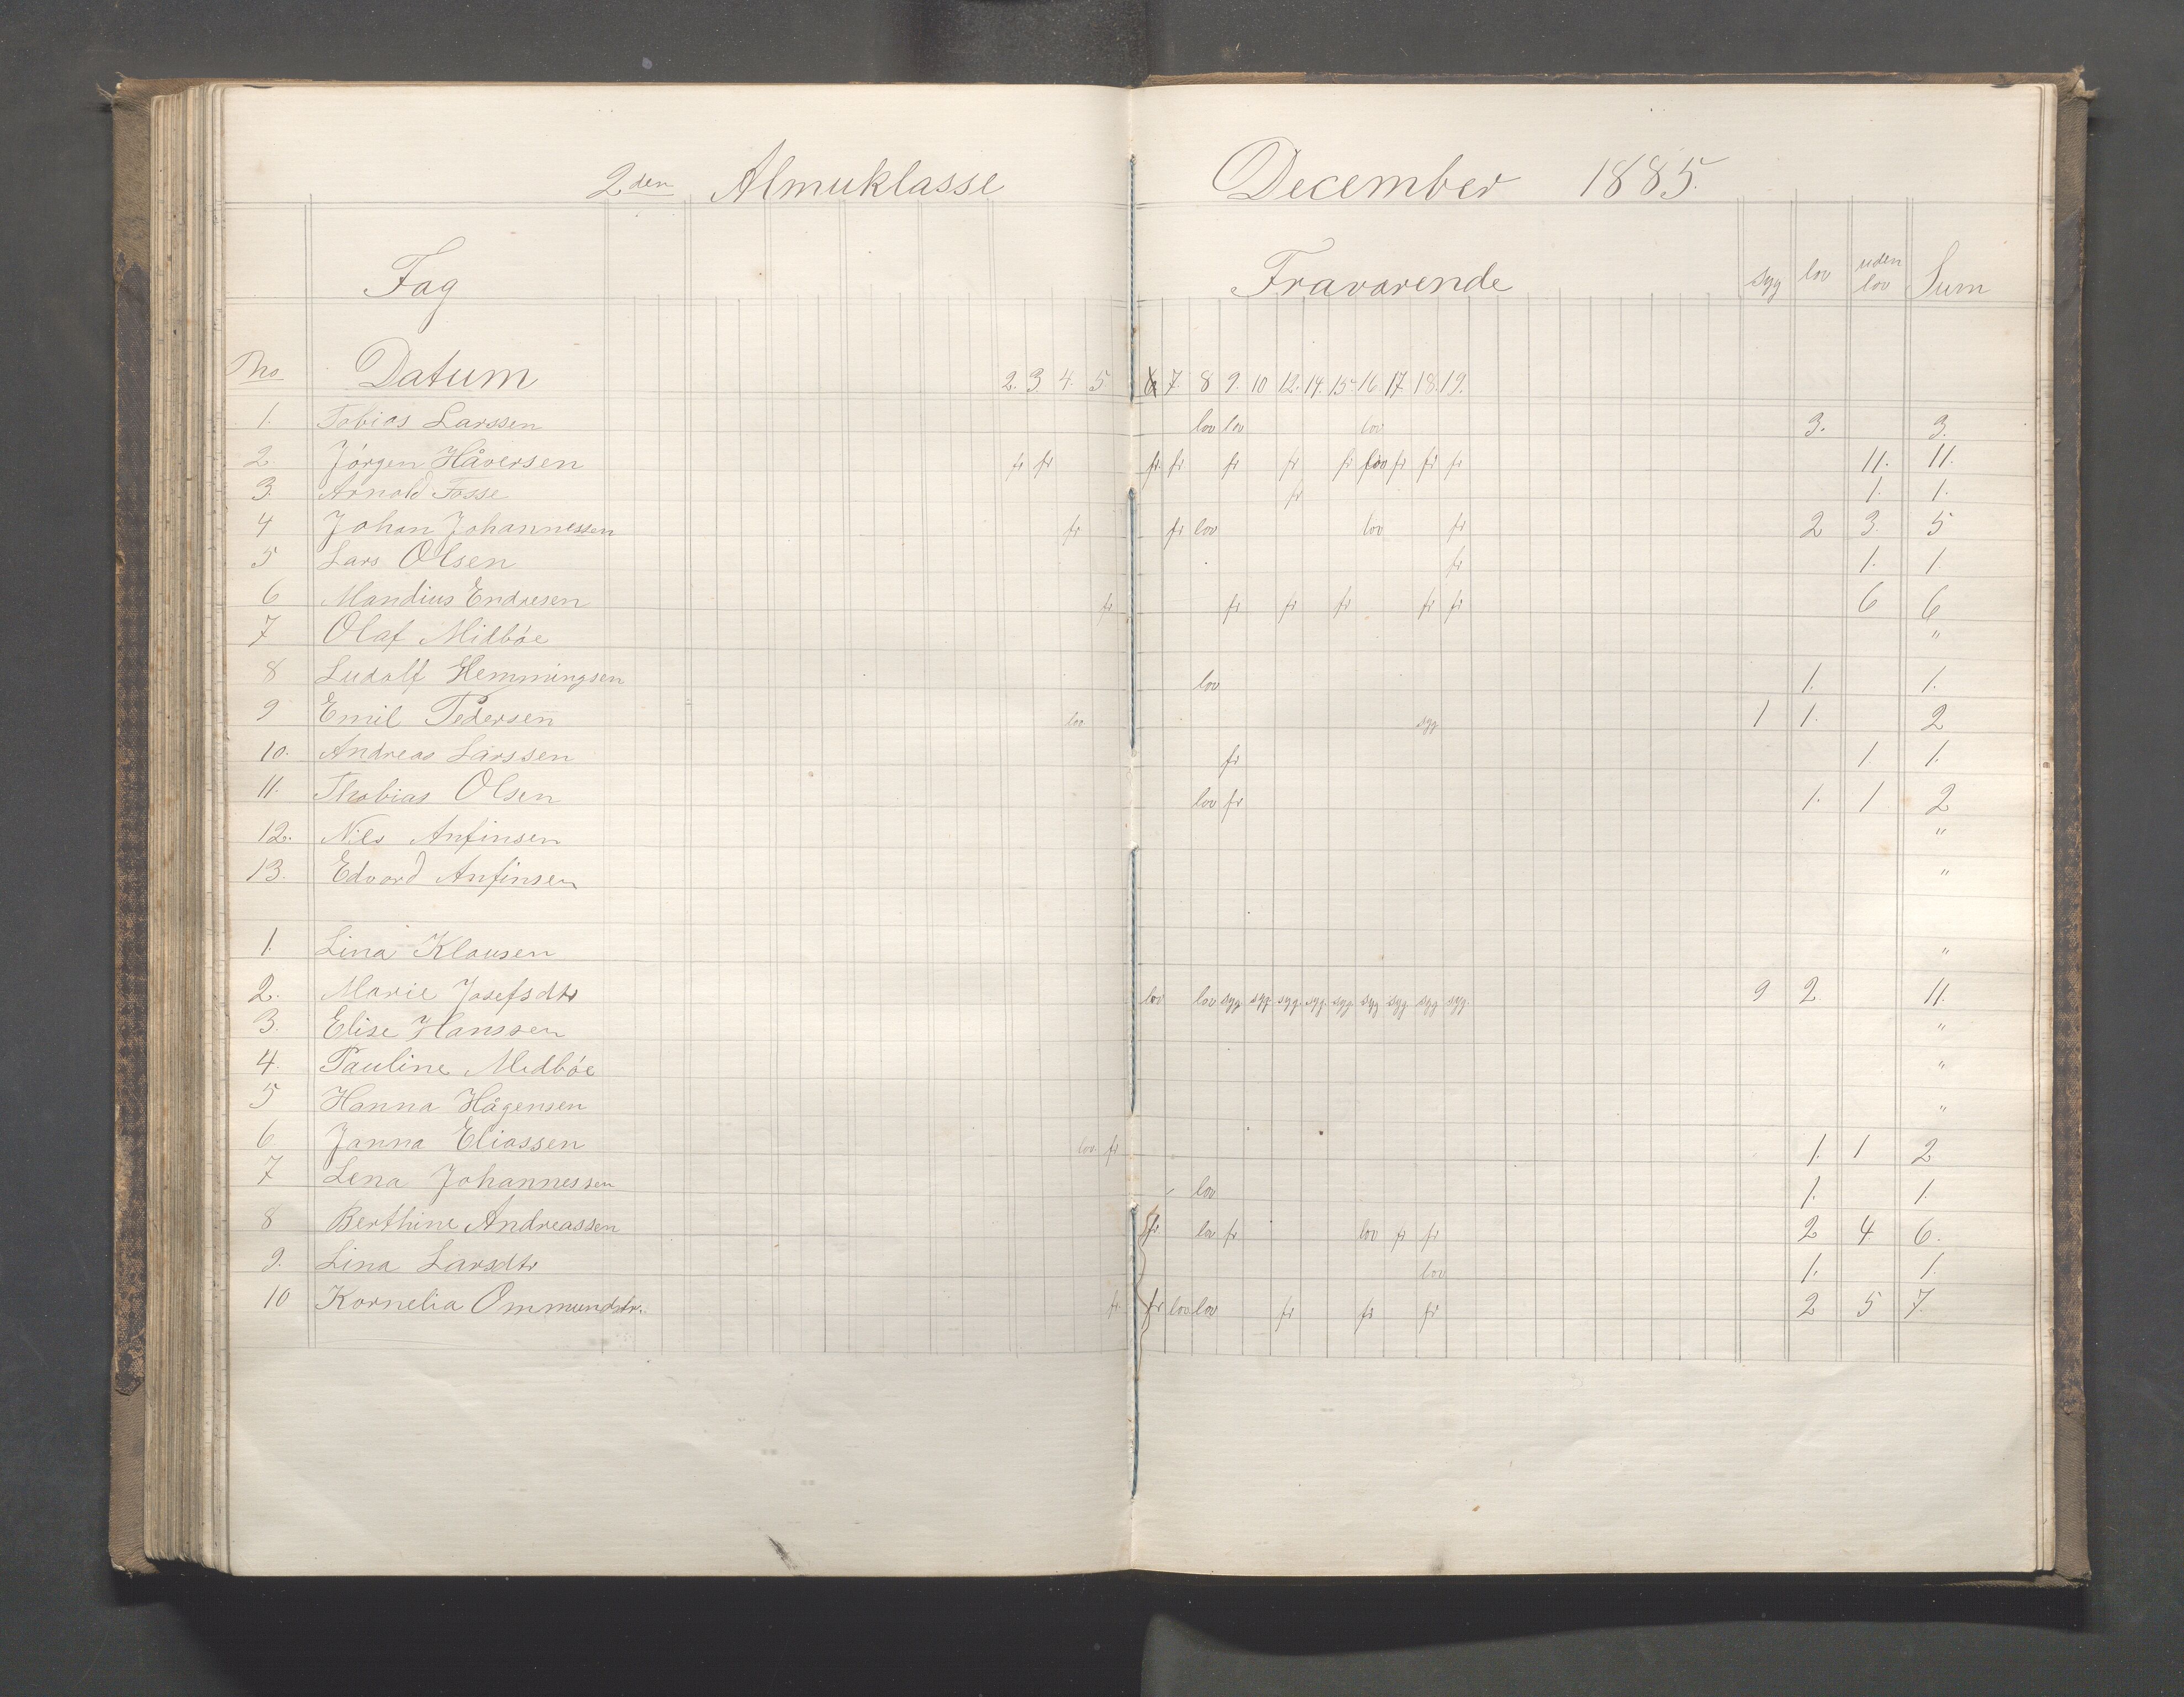 2den Almuklasse December 1885.
Fag Fravarende syg lov uden lov Sum
No Datum 2. 3. 4. 5 6 7. 8 9. 10 12. 14. 15. 16 17. 18. 19.
1. Tobias Larssen lov lov lov 3. 3.
2. Jörgen Håversen fr fr fr. fr fr fr fr lov fr fr fr 11. 11.
3. Arnold Fosse fr 1. 1.
4 Johan Johannessen fr fr lov lov fr 2 3. 5
5 Lars Olsen fr 1. 1.
6 Mandius Endresen fr fr fr fr fr fr 6 6
7 Olaf Midböe "
8 Ludolf Hemmingsen lov 1. 1.
9 Emil Pedersen lov syg 1 1. 2
10. Andreas Larssen fr 1 1.
11. Thobias Olsen lov fr 1. 1 2
12. Nils Anfinsen "
13. Edvard Anfinsen "
1. Lina Klausen "
2. Marie Josefsdtr lov lov syg. syg. syg. syg. syg. syg syg. syg syg. 9 2. 11.
3. Elise Hanssen "
4. Pauline Midböe "
5 Hanna Hågensen "
6 Janna Eliassen lov. fr 1. 1 2
7 Lena Johannessen lov 1. 1.
8 Berthine Andreassen fr. lov fr lov fr fr 2 4 6.
9. Lina Larsdtr lov 1. 1.
10 Kornelia Ommundstr. fr. fr lov lov fr fr fr 2 5 7.